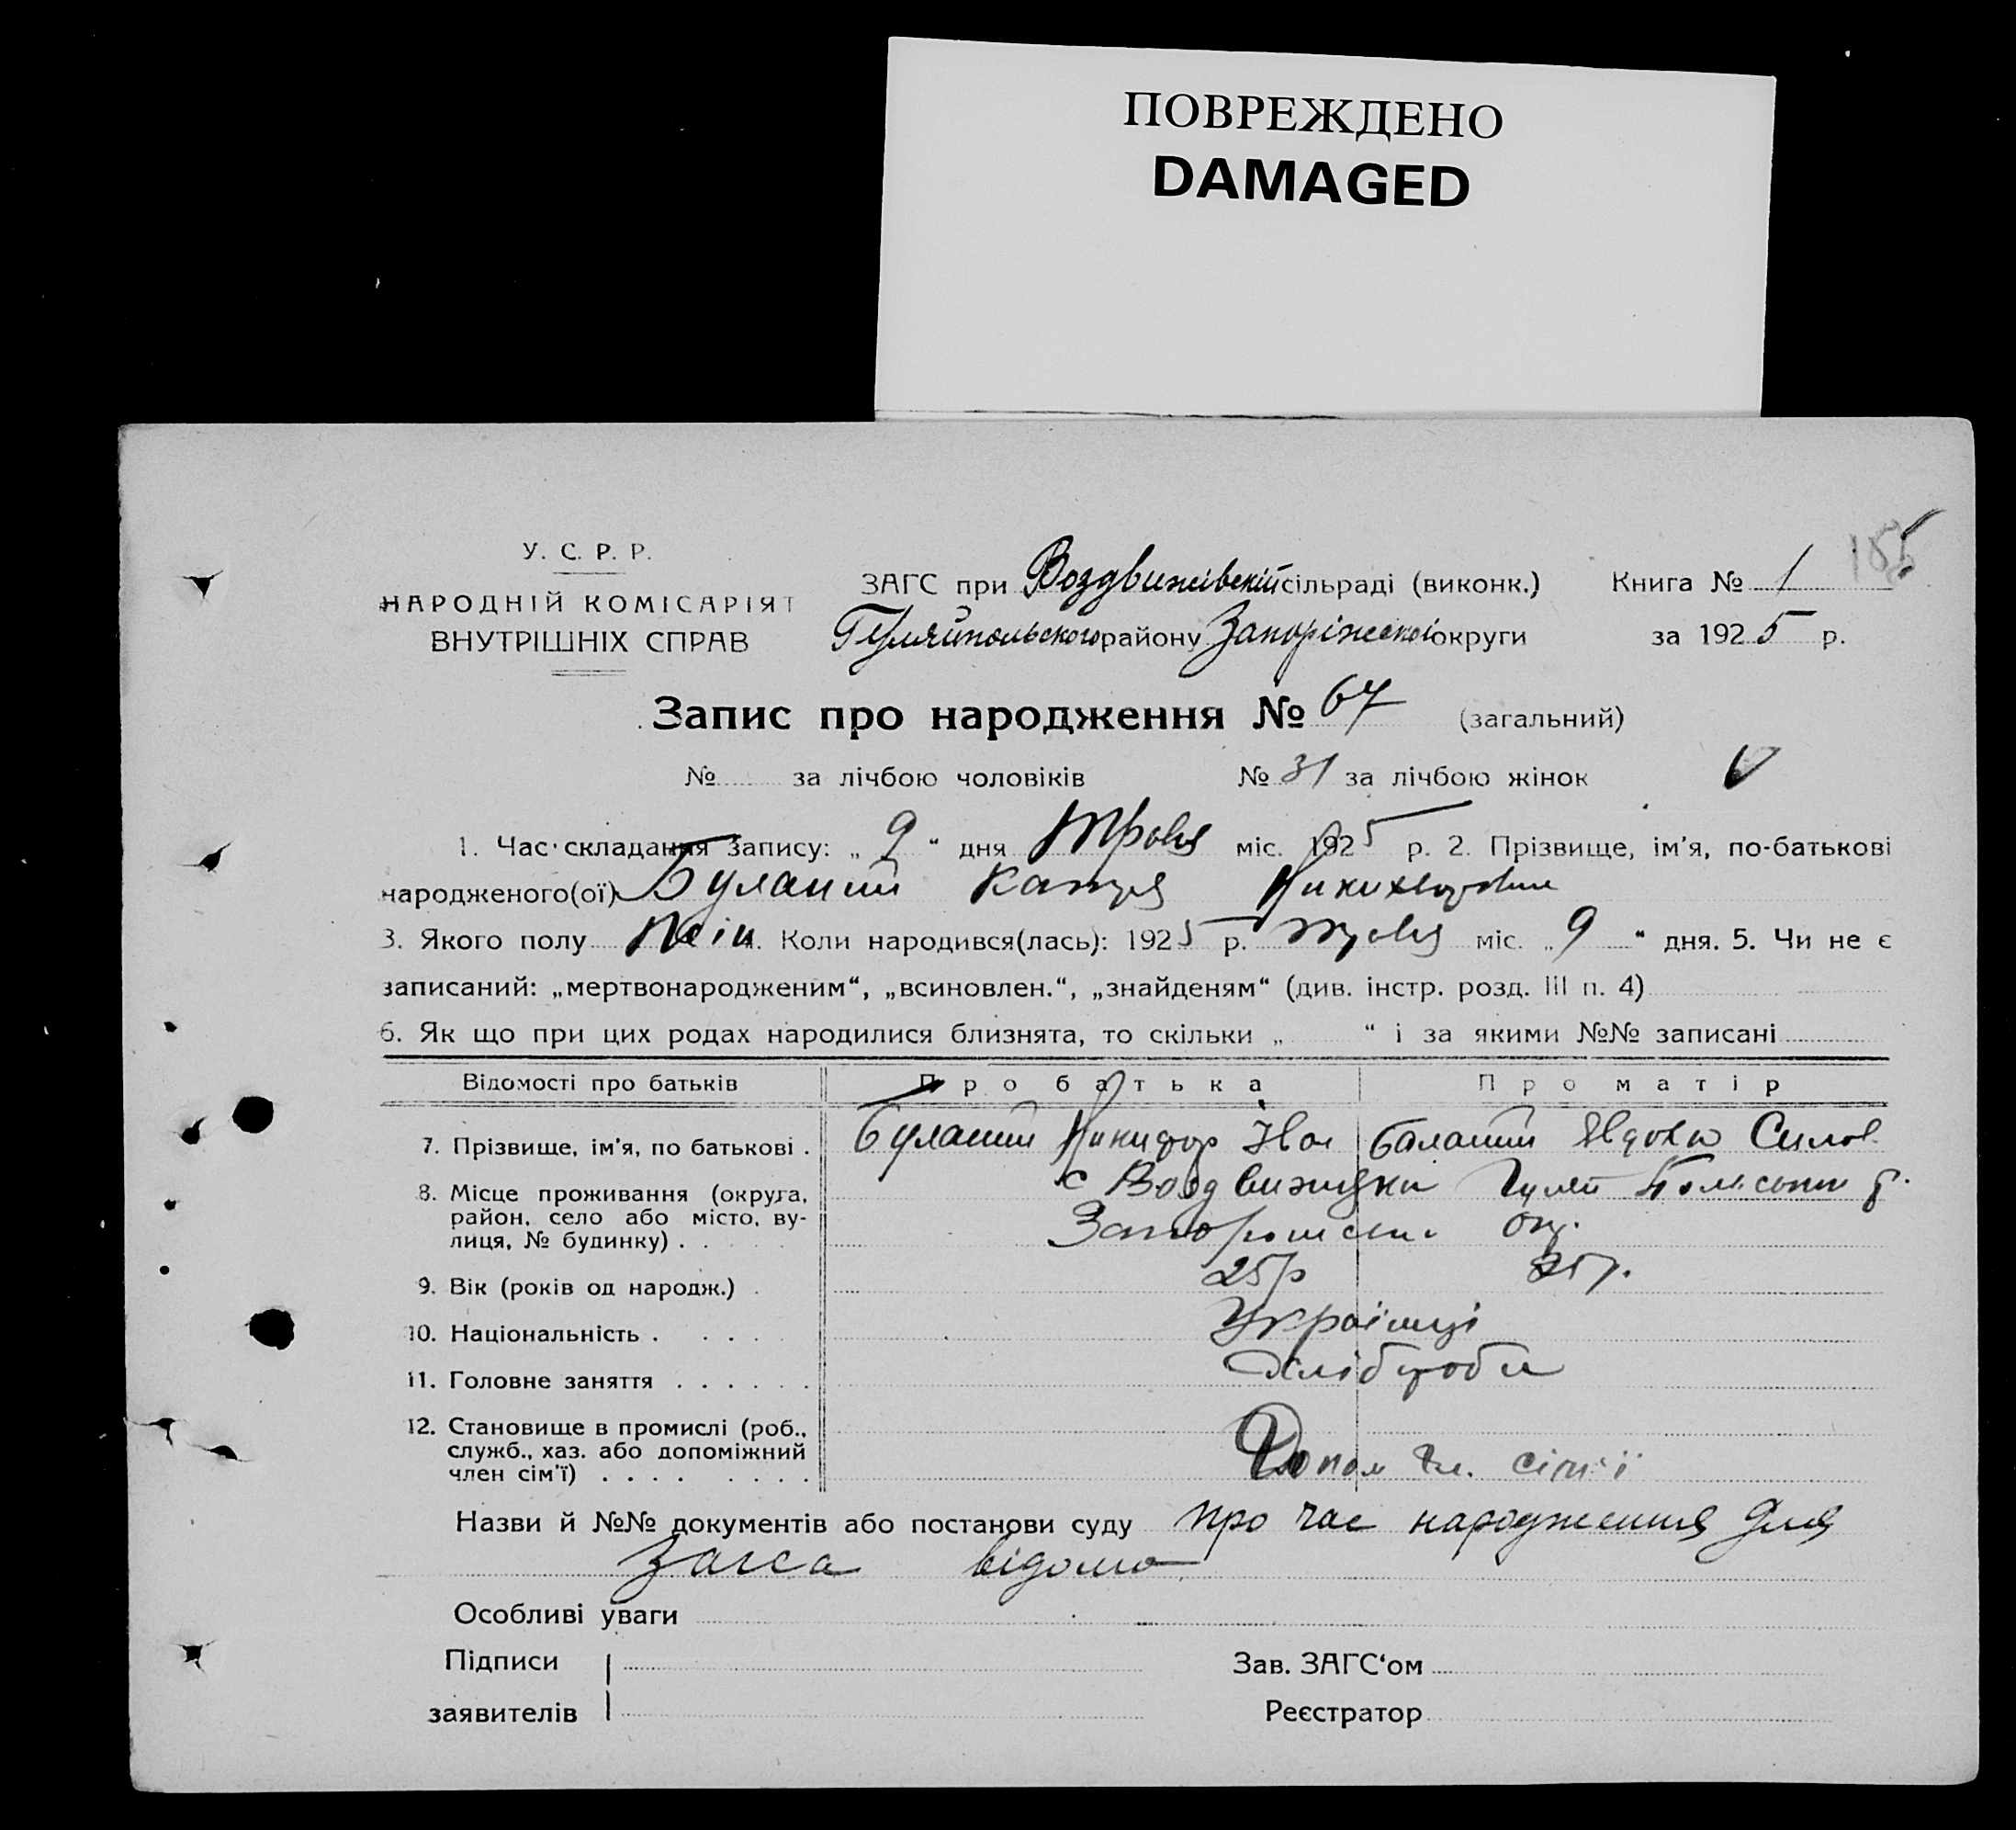 ПОВРЕЖДЕНО
DAMAGED
185
У. С. Р. Р.
НАРОДНІЙ КОМІСАРІЯТ
ВНУТРІШНІХ СПРАВ
ЗАГС при Воздвижівській сільраді (виконк.) Книга № 1
Гуляйпольського району Запоріжської округи за 1925 р.
Запис про народження № 67 (загальний)
№ за лічбою чоловіків № 31 за лічбою жінок
1. Час складання запису: „ 9 “ дня Травня міс. 1925 р. 2. Прізвище, ім'я, по-батькові
народженого(ої) Буланий Катря
3. Якого полу Жін 4. Коли народився(лась): 1925 р. травня міс. „ 9 “ дня. 5. Чи не є
записаний: „мертвонародженим“, „всиновлен.“, „знайденям“ (див. інстр. розд. III п. 4)
6. Як що при цих родах народилися близнята, то скільки „ “ і за якими №№ записані
Відомості про батьків Про батька Про матір
7. Прізвище, ім'я, по батькові . Буланий Никифор Іва Буланий Явдоха Силов
8. Місце проживання (округа, район, село або місто, вулиця, № будинку) . с Воздвижувки Гуляй р.
окр.
9. Вік (років од народж.) . 25р 25р.
10. Національність . Українці
11. Головне заняття . . . . . . Хлібороби
12. Становище в промислі (роб.,
служб., хаз. або допоміжний
член сім'ї) . . . . Допом чл. сім'ї
Назви й №№ документів або постанови суду про час народження для
Загса відомо
Особливі уваги
Підписи Зав. ЗАГС'ом
заявителів Реєстратор